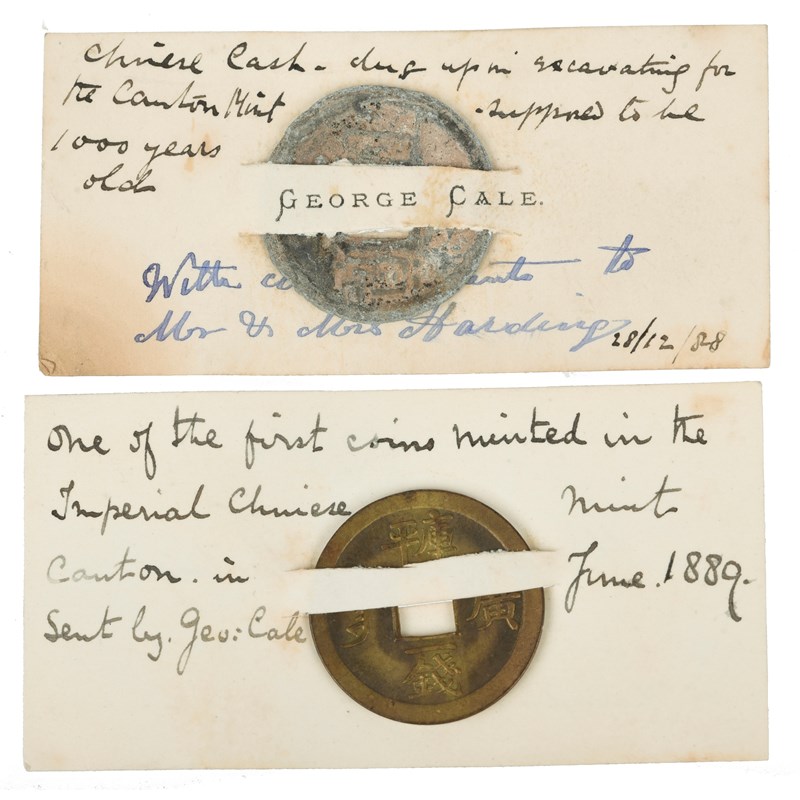 Chinese Cash - dug up in excavating for
the Canton Mint - supposed to be
1000 years
old
GEORGE CALE.
With to
Mr & Mrs Harding 28/12/88
One of the first coins minted in the
Imperial Chinese Mint
Canton. in June. 1889.
Sent by. Geo: Cale
平 庫
廣
一
錢